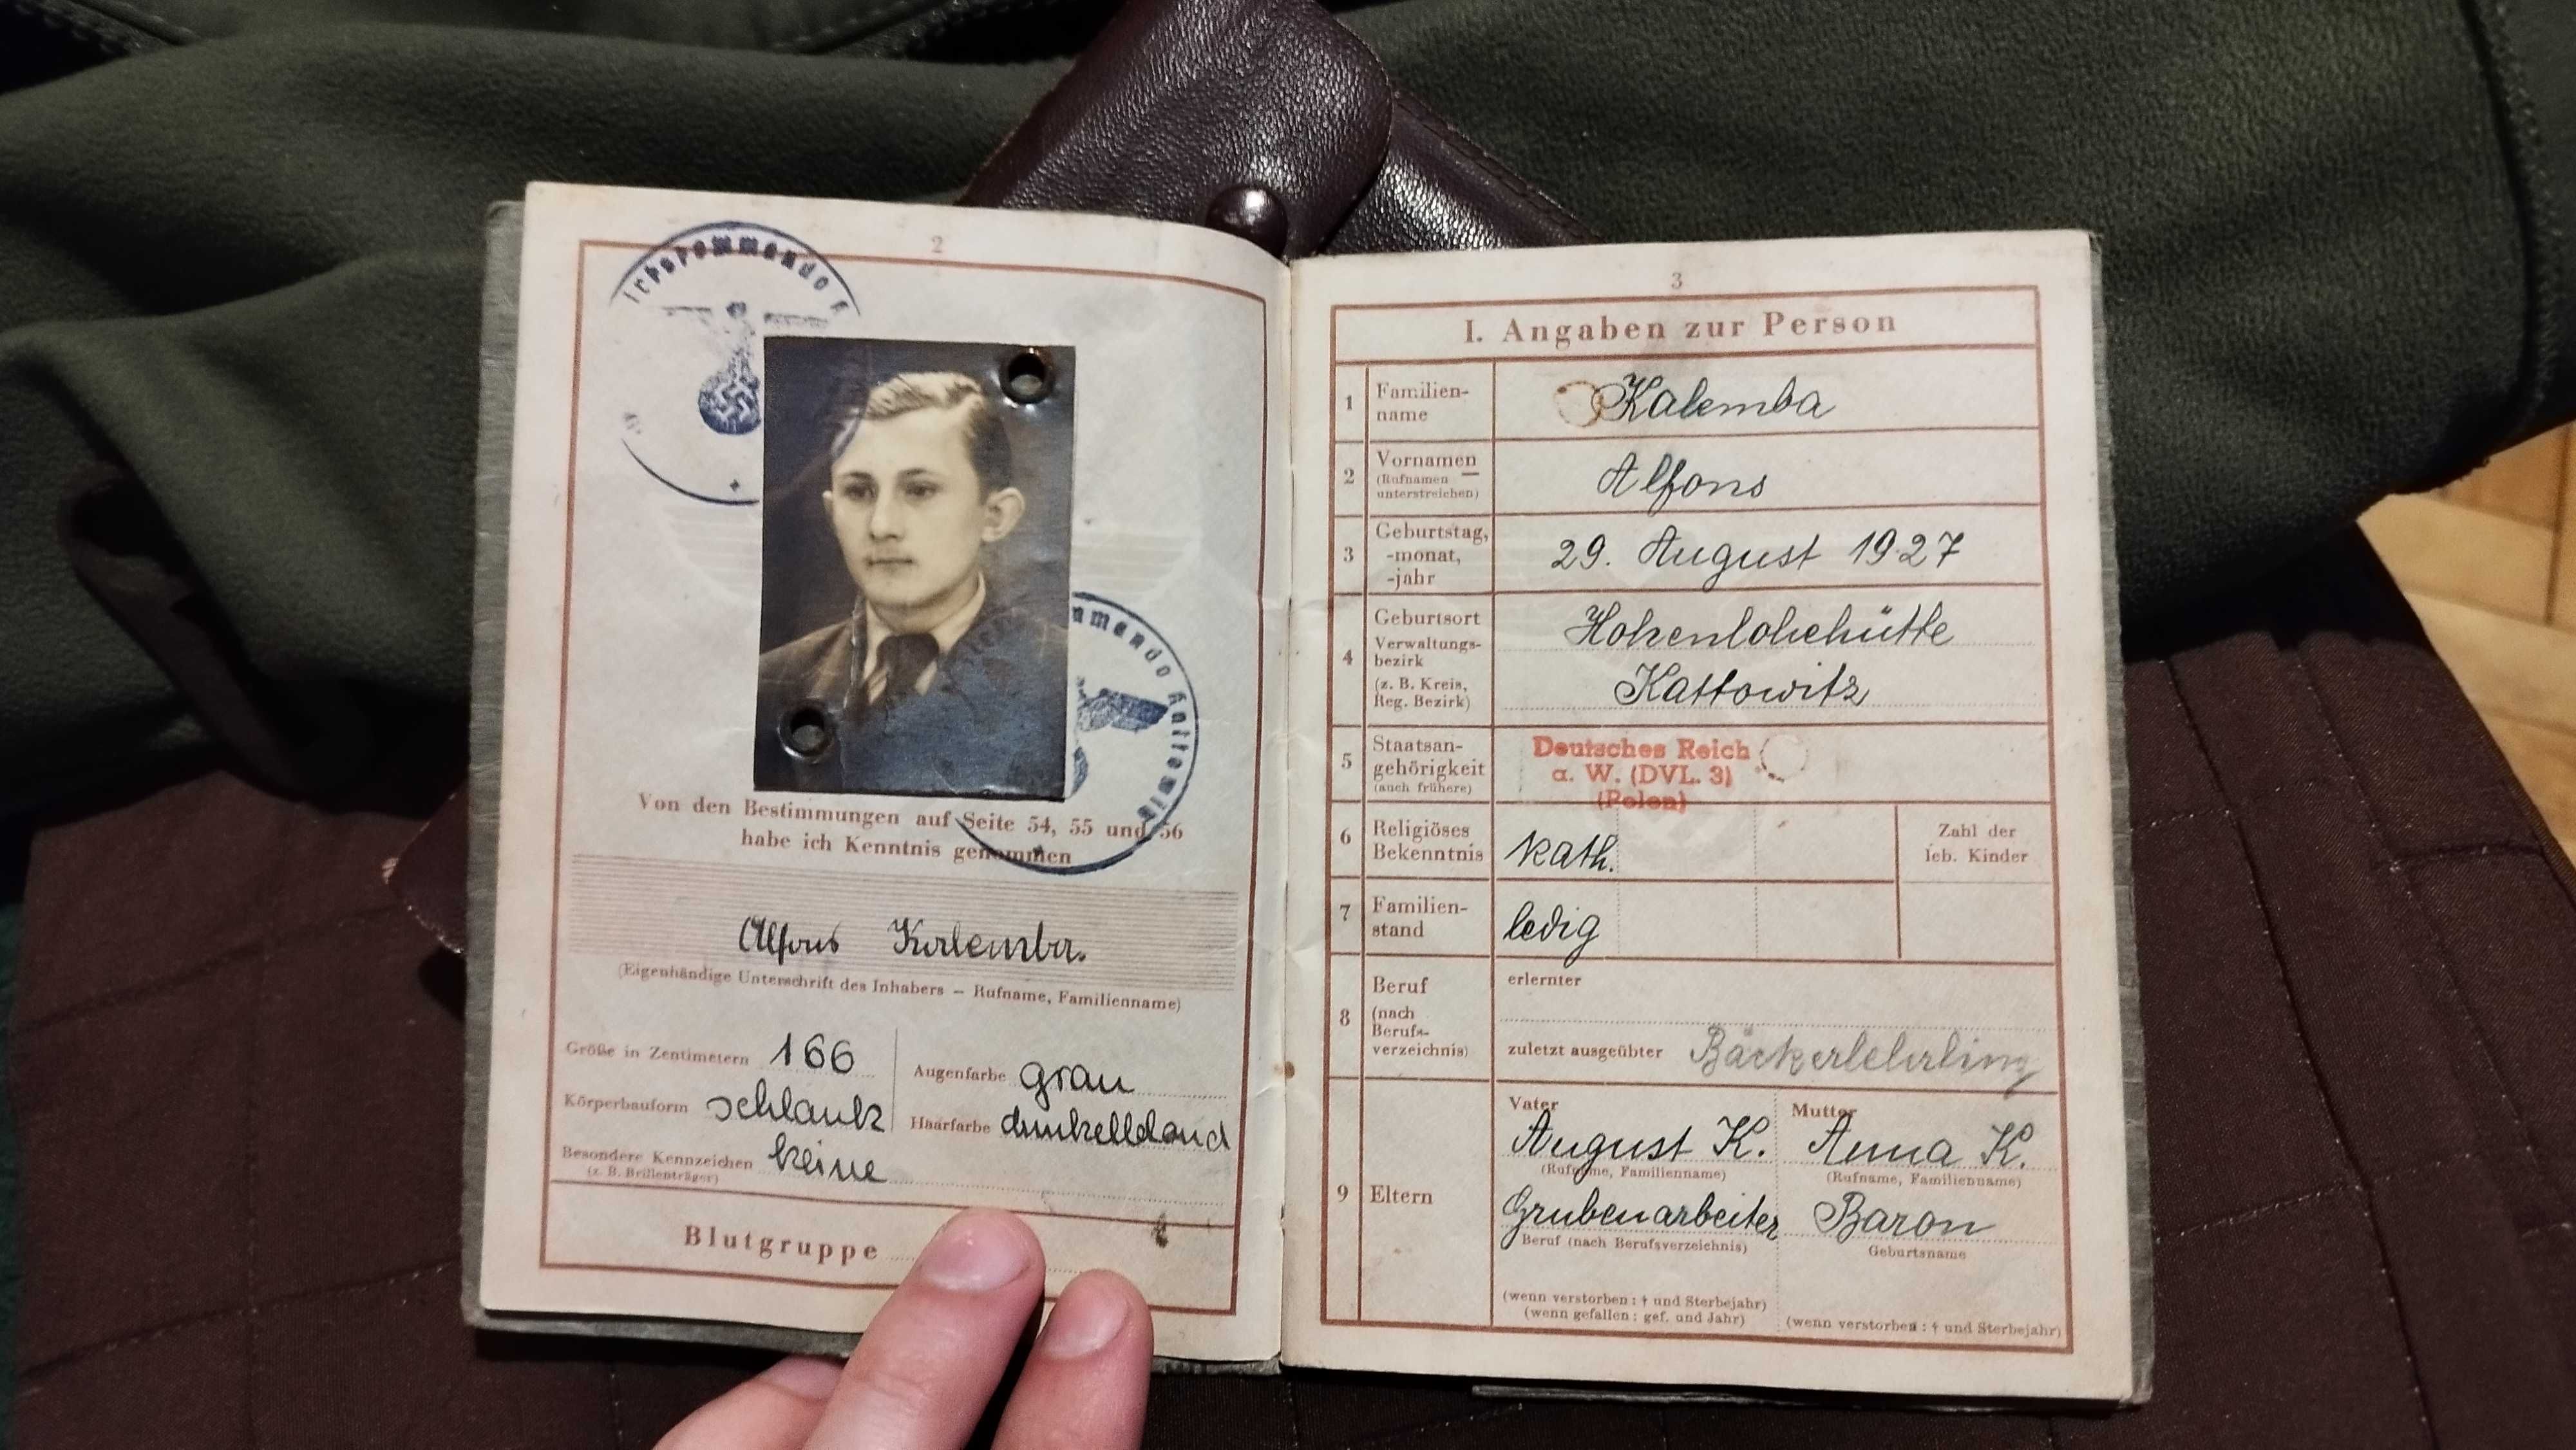 2
Wehrbezirkskommando K
Von den Bestimmungen auf Seite 54, 55 und 56
habe ich Kenntnis genommen
mmando Kattowitz
Alfons Kalemba.
(Eigenhändige Unterschrift des Inhabers – Rufname, Familienname)
Größe in Zentimetern 166
Augenfarbe grau
Körperbauform schlank
Haarfarbe dunkelblond
Besondere Kennzeichen keine
(z. B. Brillenträger)
Blutgruppe
3
I. Angaben zur Person
1 Familien-
name
Kalemba
2 Vornamen
(Rufnamen
unterstreichen)
Alfons
3 Geburtstag,
-monat,
-jahr
29. August 1927
4 Geburtsort
Verwaltungs-
bezirk
(z. B. Kreis,
Reg. Bezirk)
Hohenlohehütte
Kattowitz
5 Staatsan-
gehörigkeit
(auch frühere)
Deutsches Reich
a. W. (DVL. 3)
(Polen)
6 Religiöses
Bekenntnis
kath.
Zahl der
leb. Kinder
7 Familien-
stand
ledig
8 Beruf
(nach
Berufs-
verzeichnis)
erlernter
zuletzt ausgeübter Bäckerlehrling
9 Eltern
Vater
August K.
(Rufname, Familienname)
Grubenarbeiter
Beruf (nach Berufsverzeichnis)
(wenn verstorben : † und Sterbejahr)
(wenn gefallen : gef. und Jahr)
Mutter
Anna K.
(Rufname, Familienname)
Baron
Geburtsname
(wenn verstorben : † und Sterbejahr)